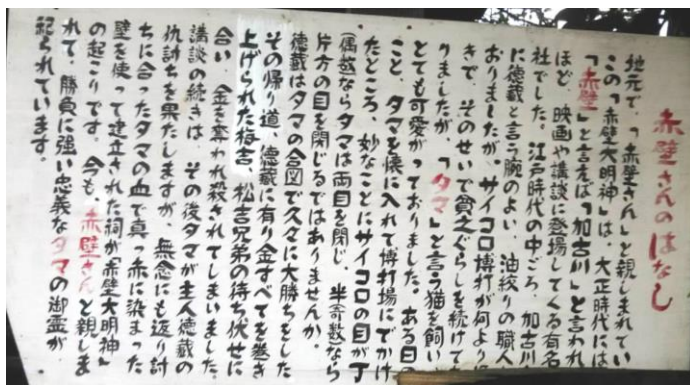 赤壁さんのはなし
地元で、「赤壁さん」と親しまれてい
この「赤壁大明神」は、大正時代には
「赤壁」と言えば「加古川」と言われ
ほど、映画や講談に登場してくる有名
社でした。江戸時代の中ごろ、加古川
に徳蔵と言う腕のよい、油絞りの職人
おりましたが、サイコロ博打が何より
きで、そのせいで貧乏ぐらしを続けて
りましたが、「タマ」と言う猫を飼い
とても可愛がっておりました。ある日の
こと、タマを懐に入れて博打場にでかけ
たところ、妙なことにサイコロの目が丁
(偶数ならタマは両目を閉じ、半奇数なら
片方の目を閉じるではありませんか。
徳蔵はタマの合図で久々に大勝ちをした
その帰り道、徳蔵に有り金すべてを巻き
上げられた梅吉、松吉兄弟の待ち伏せに
合い、金を奪われ殺されてしまいました。
講談の続きは、その後タマが主人徳蔵の
仇討ちを果たしますが、無念にも返り討
ちに合ったタマの血で真っ赤に染まった
壁を使って建立された祠が「赤壁大明神」
の起こりです。今も、赤壁さんと親しま
れて、勝負に強い忠義なタマの御霊が
祀られています。